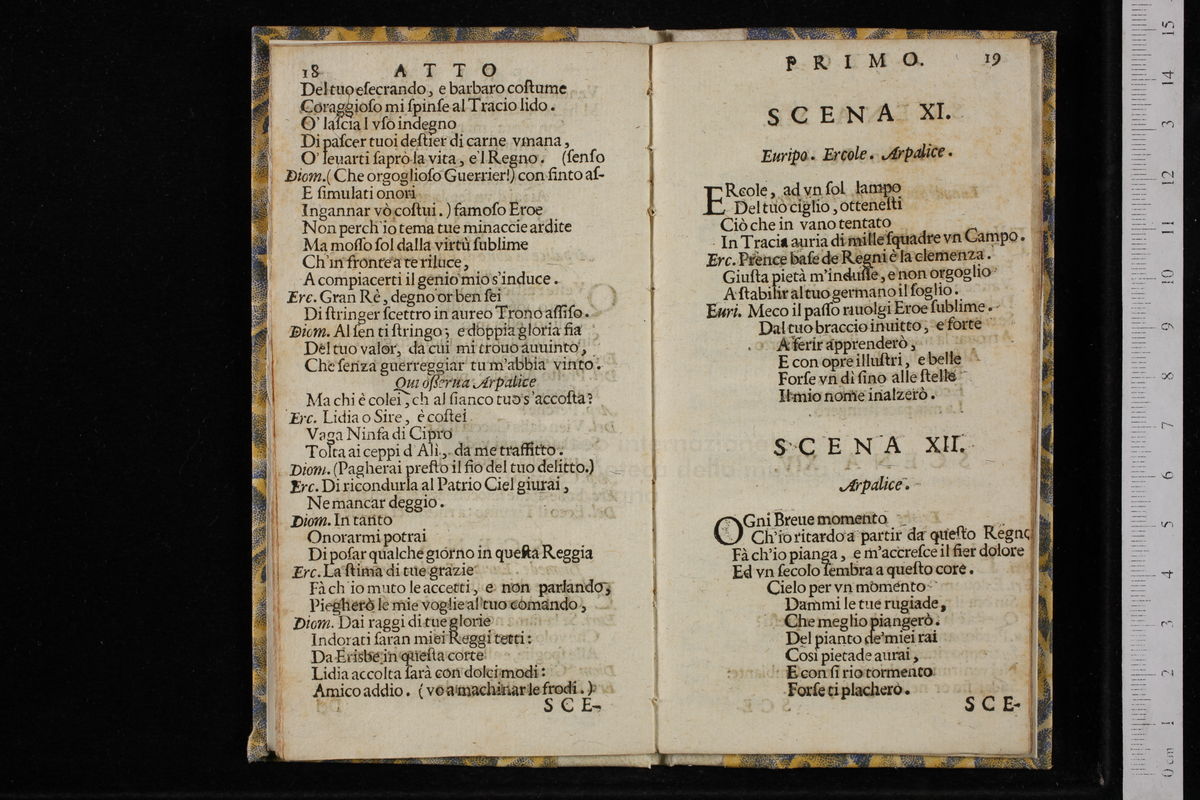 18 ATTO
Del tuo esecrando, e barbaro coſtume
Coraggioſo mi ſpinſe al Tracio lido.
O' laſcia l vſo indegno
Di paſcer tuoi deſtier di carne vmana,
O' leuarti ſaprò la vita, e'l Regno. (ſenſo
Diom.( Che orgoglioſo Guerrier!) con finto aſ-
E ſimulati onori
Ingannar vò coſtui.) famoſo Eroe
Non perch'io tema tue minaccie ardite
Ma moſſo ſol dalla virtù ſublime
Ch'in fronte a te riluce,
A compiacerti il genio mio s'induce.
Erc. Gran Rè, degno or ben ſei
Di ſtringer ſcettro in aureo Trono aſſiſo.
Diom. Al ſen ti ſtringo; e doppia gloria fia
Del tuo valor, da cui mi trouo auuinto,
Che ſenza guerreggiar tu m'abbia vinto.
Qui oſſerua Arpalice
Ma chi è colei, ch al fianco tuo s'accoſta?
Erc. Lidia o Sire, è coſtei
Vaga Ninfa di Cipro
Tolta ai ceppi d'Alì, da me traffitto.
Diom. (Pagherai preſto il fio del tuo delitto.)
Erc. Di ricondurla al Patrio Ciel giurai,
Ne mancar deggio.
Diom. In tanto
Onorarmi potrai
Di poſar qualche giorno in queſta Reggia
Erc. La ſtima di tue grazie
Fà ch'io muto le accetti, e non parlando,
Piegherò le mie voglie al tuo comando,
Diom. Dai raggi di tue glorie
Indorati ſaran miei Reggi tetti:
Da Erisbe in queſta corte
Lidia accolta ſarà con dolci modi:
Amico addio. (vo a machinar le frodi.)
SCE-
PRIMO. 19
SCENA XI.
Euripo. Ercole. Arpalice.
ERcole, ad vn ſol lampo
Del tuo ciglio, otteneſti
Ciò che in vano tentato
In Tracia auria di mille ſquadre vn Campo.
Erc. Prence baſe de Regni è la clemenza.
Giuſta pietà m'induſſe, e non orgoglio
A ſtabilir al tuo germano il ſoglio.
Euri. Meco il paſſo riuolgi Eroe ſublime.
Dal tuo braccio inuitto, e forte
A ferir apprenderò,
E con opre illuſtri, e belle
Forſe vn dì ſino alle ſtelle
Il mio nome inalzerò.
SCENA XII.
Arpalice.
OGni Breue momento
Ch'io ritardo a partir da queſto Regno
Fà ch'io pianga, e m'accreſce il fier dolore
Ed vn ſecolo ſembra a queſto core.
Cielo per vn momento
Dammi le tue rugiade,
Che meglio piangerò.
Del pianto de'miei rai
Così pietade aurai,
E con ſi rio tormento
Forſe ti placherò.
SCE-